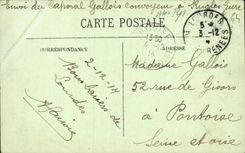 Envoi du Caporal Gallois convoyeur à Rugles Eure
CARTE POSTALE
CORRESPONDANCE
LOURDES
3-12
PYRENEES
2-12-14
Bons baisers de
Lourdes
Madame Gallois
52 rue de Gisors
à Pontoise
Seine et Oise